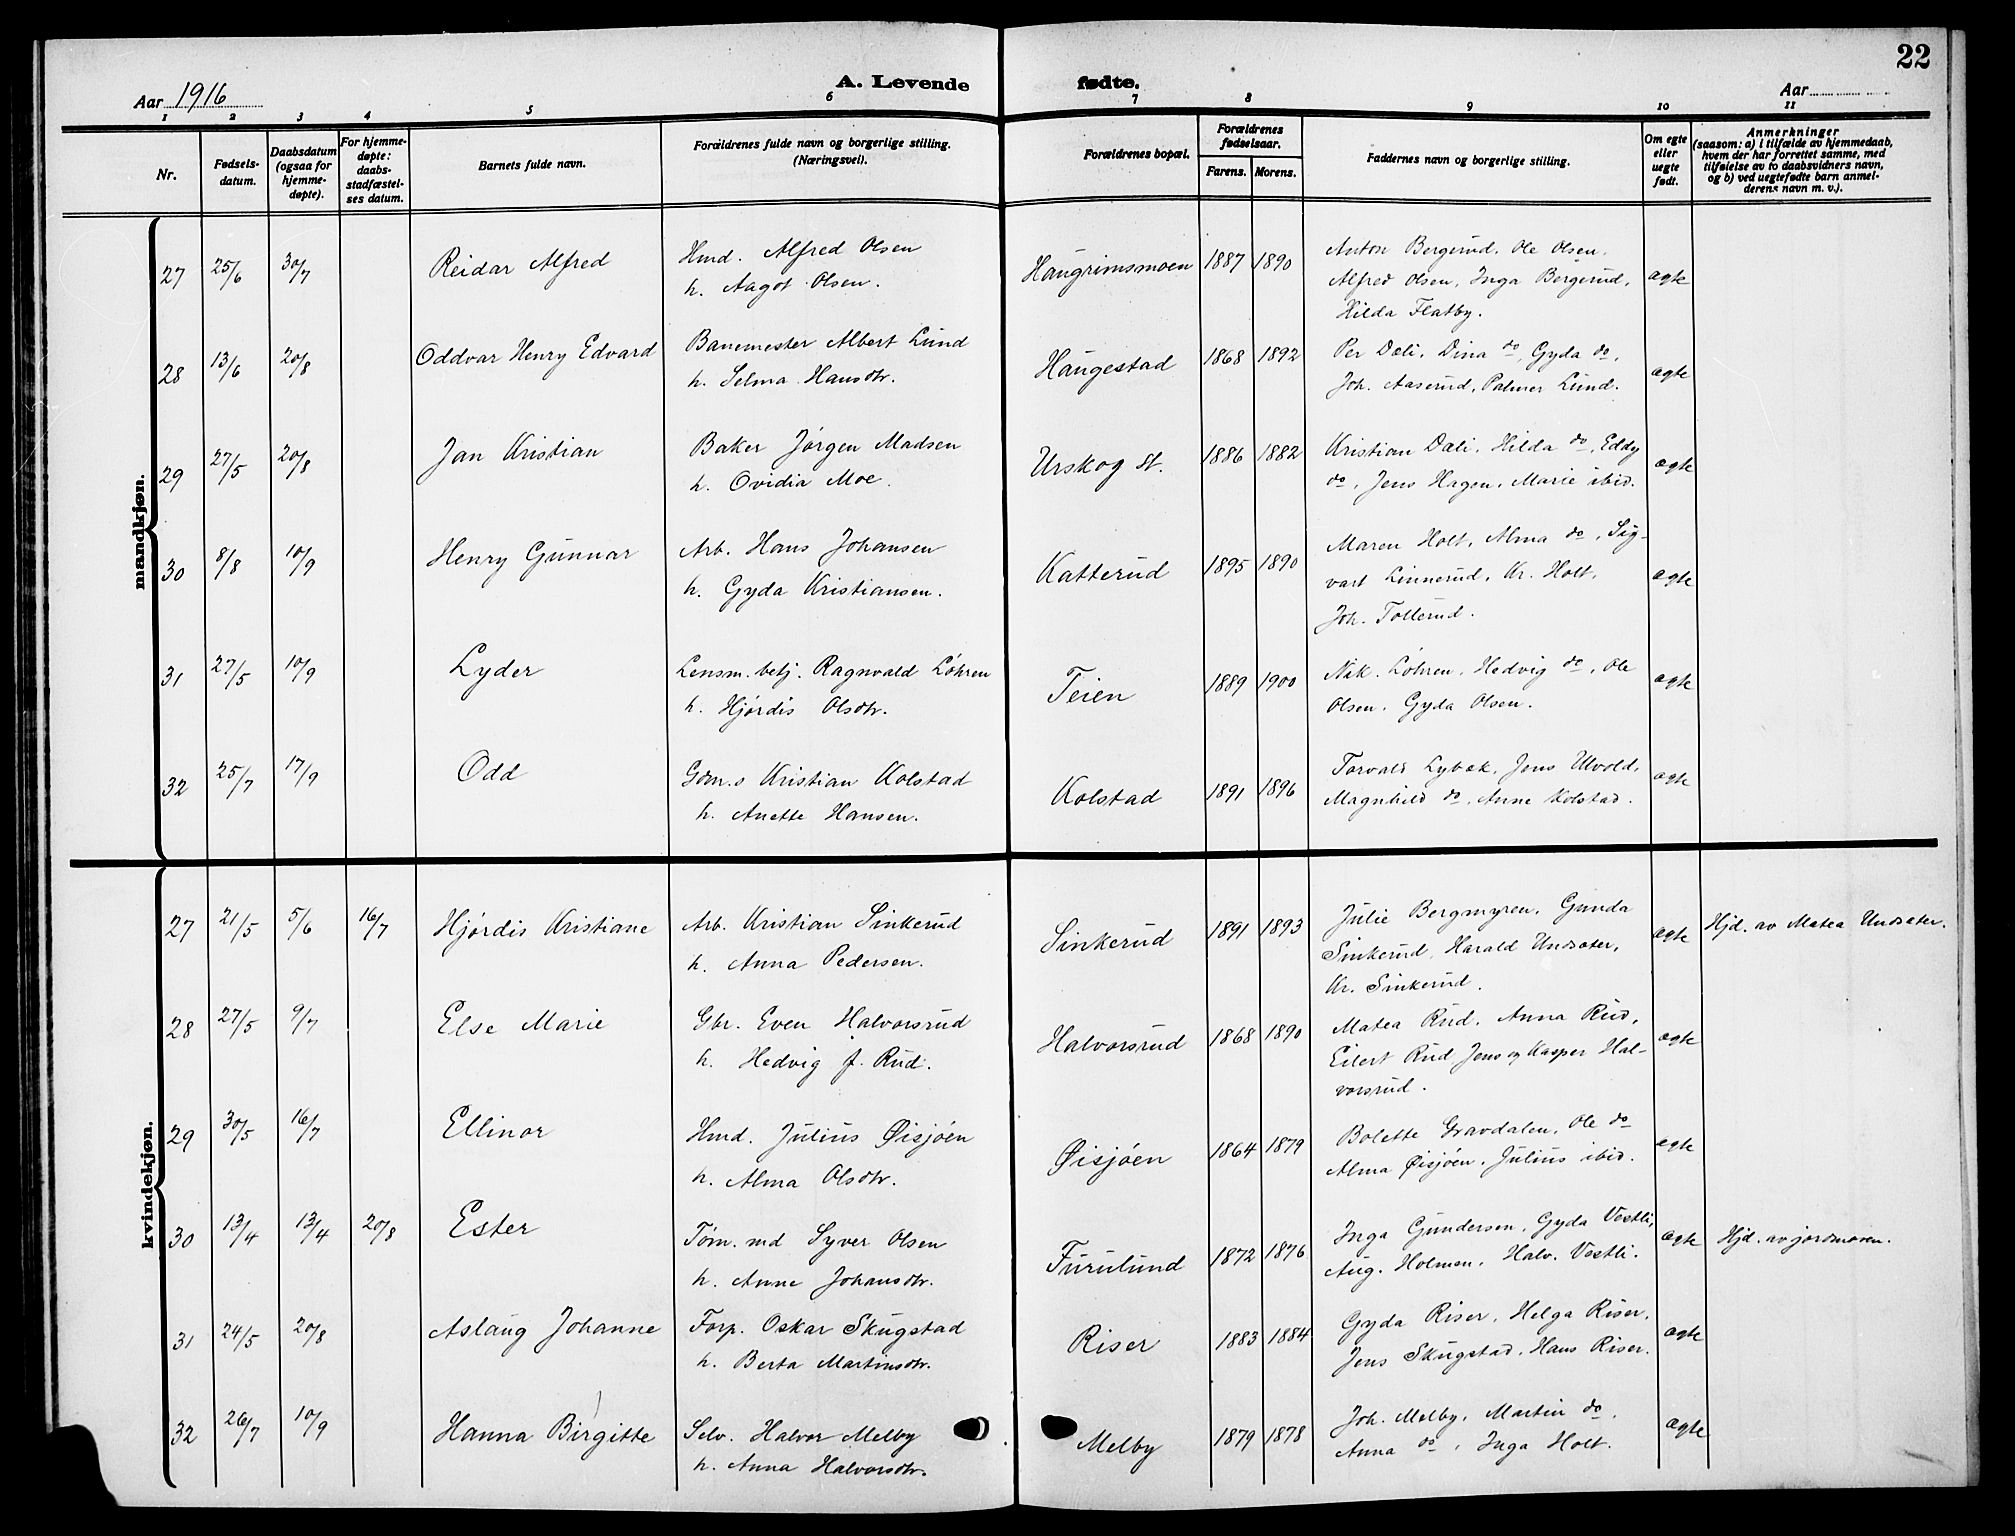 22
Aar 1916
A. Levende fødte.
Aar
1 2 3 4 5 6 7 8 9 10 11
Nr.
Fødsels-
datum.
Daabsdatum
(ogsaa for
hjemme-
døpte).
For hjemme-
døpte:
daabs-
stadfæstel-
ses datum.
Barnets fulde navn.
Forældrenes fulde navn og borgerlige stilling.
(Næringsvei).
Forældrenes bopæl.
Forældrenes
fødselsaar.
Farens. Morens.
Faddernes navn og borgerlige stilling.
Om egte
eller
uegte
født.
Anmerkninger
(saasom: a) i tilfælde av hjemmedaab,
hvem der har forrettet samme, med
tilføielse av to daabsvidners navn,
og b) ved uegtefødte barn anmel-
derens navn m. v.).
mandkjøn.
27 25/6 30/7 Reidar Alfred
Hmd. Alfred Olsen
h. Aagot Olsen.
Haugrimsmoen 1887 1890
Anton Bergerud. Ole Olsen.
Alfred Olsen, Inga Bergerud,
Hilda Flatby.
ægte
28 13/6 20/8 Oddvar Henry Edvard
Banemester Albert Lund
h. Selma Hansdtr.
Haugestad 1868 1892
Per Dæli, Dina do, Gyda do,
Joh. Aaserud, Palmer Lund.
ægte
29 27/5 20/8 Jan Kristian
Baker Jørgen Madsen
h. Ovidia Moe.
Urskog st. 1886 1882
Kristian Dæli, Hilda do, Eddy
do, Jens Hagen, Marie ibid.
ægte
30 8/8 10/9 Henry Gunnar
Arb. Hans Johansen
h. Gyda Kristiansen.
Katterud 1895 1890
Maren Holt, Alma do, Sig-
vart Linnerud, Kr. Holt,
Joh. Tollerud.
ægte
31 27/5 10/9 Lyder
Lensm. betj. Ragnvald Løhren
h. Hjørdis Olsdtr.
Teien 1889 1900
Nik. Løhren, Hedvig do, Ole
Olsen, Gyda Olsen.
ægte
32 25/7 17/9 Odd
Gdm.s Kristian Kolstad
h. Anette Hansen.
Kolstad 1891 1896
Torvald Lybæk, Jens Ulvold,
Magnhild do, Anne Kolstad.
ægte
kvindekjøn.
27 21/5 5/6 16/7 Hjørdis Kristiane
Arb. Kristian Sinkerud
h. Anna Pedersen.
Sinkerud 1891 1893
Julie Bergmyren, Gunda
Sinkerud, Harald Undsæter,
Kr. Sinkerud.
ægte
Hjd. av Matea Undsæter.
28 27/5 9/7 Else Marie
Gbr. Even Halvorsrud
h. Hedvig f. Rud.
Halvorsrud 1868 1890
Matea Rud, Anna Rud,
Eilert Rud, Jens og Kasper Hal-
vorsrud.
ægte
29 30/5 16/7 Ellinor
Hmd. Julius Øisjøen
h. Alma Olsdtr.
Øisjøen 1864 1879
Bolette Gravdalen, Ole do
Alma Øisjøen, Julius ibid.
ægte
30 13/4 13/4 20/8 Ester
Tøm. md Syver Olsen
h. Anne Johansdtr.
Furulund 1872 1876
Inga Gundersen, Gyda Vestli,
Aug. Holmen, Halv. Vestli.
ægte
Hjd. av jordmoren.
31 24/5 20/8 Aslaug Johanne
Forp. Oskar Skugstad
h. Berta Martinsdtr.
Riser 1883 1884
Gyda Riser, Helga Riser,
Jens Skugstad, Hans Riser.
ægte
32 26/7 10/9 Hanna Birgitte
Selv. Halvor Melby
h. Anna Halvorsdtr.
Melby 1879 1878
Joh. Melby, Martin do,
Anna do, Inga Holt.
ægte